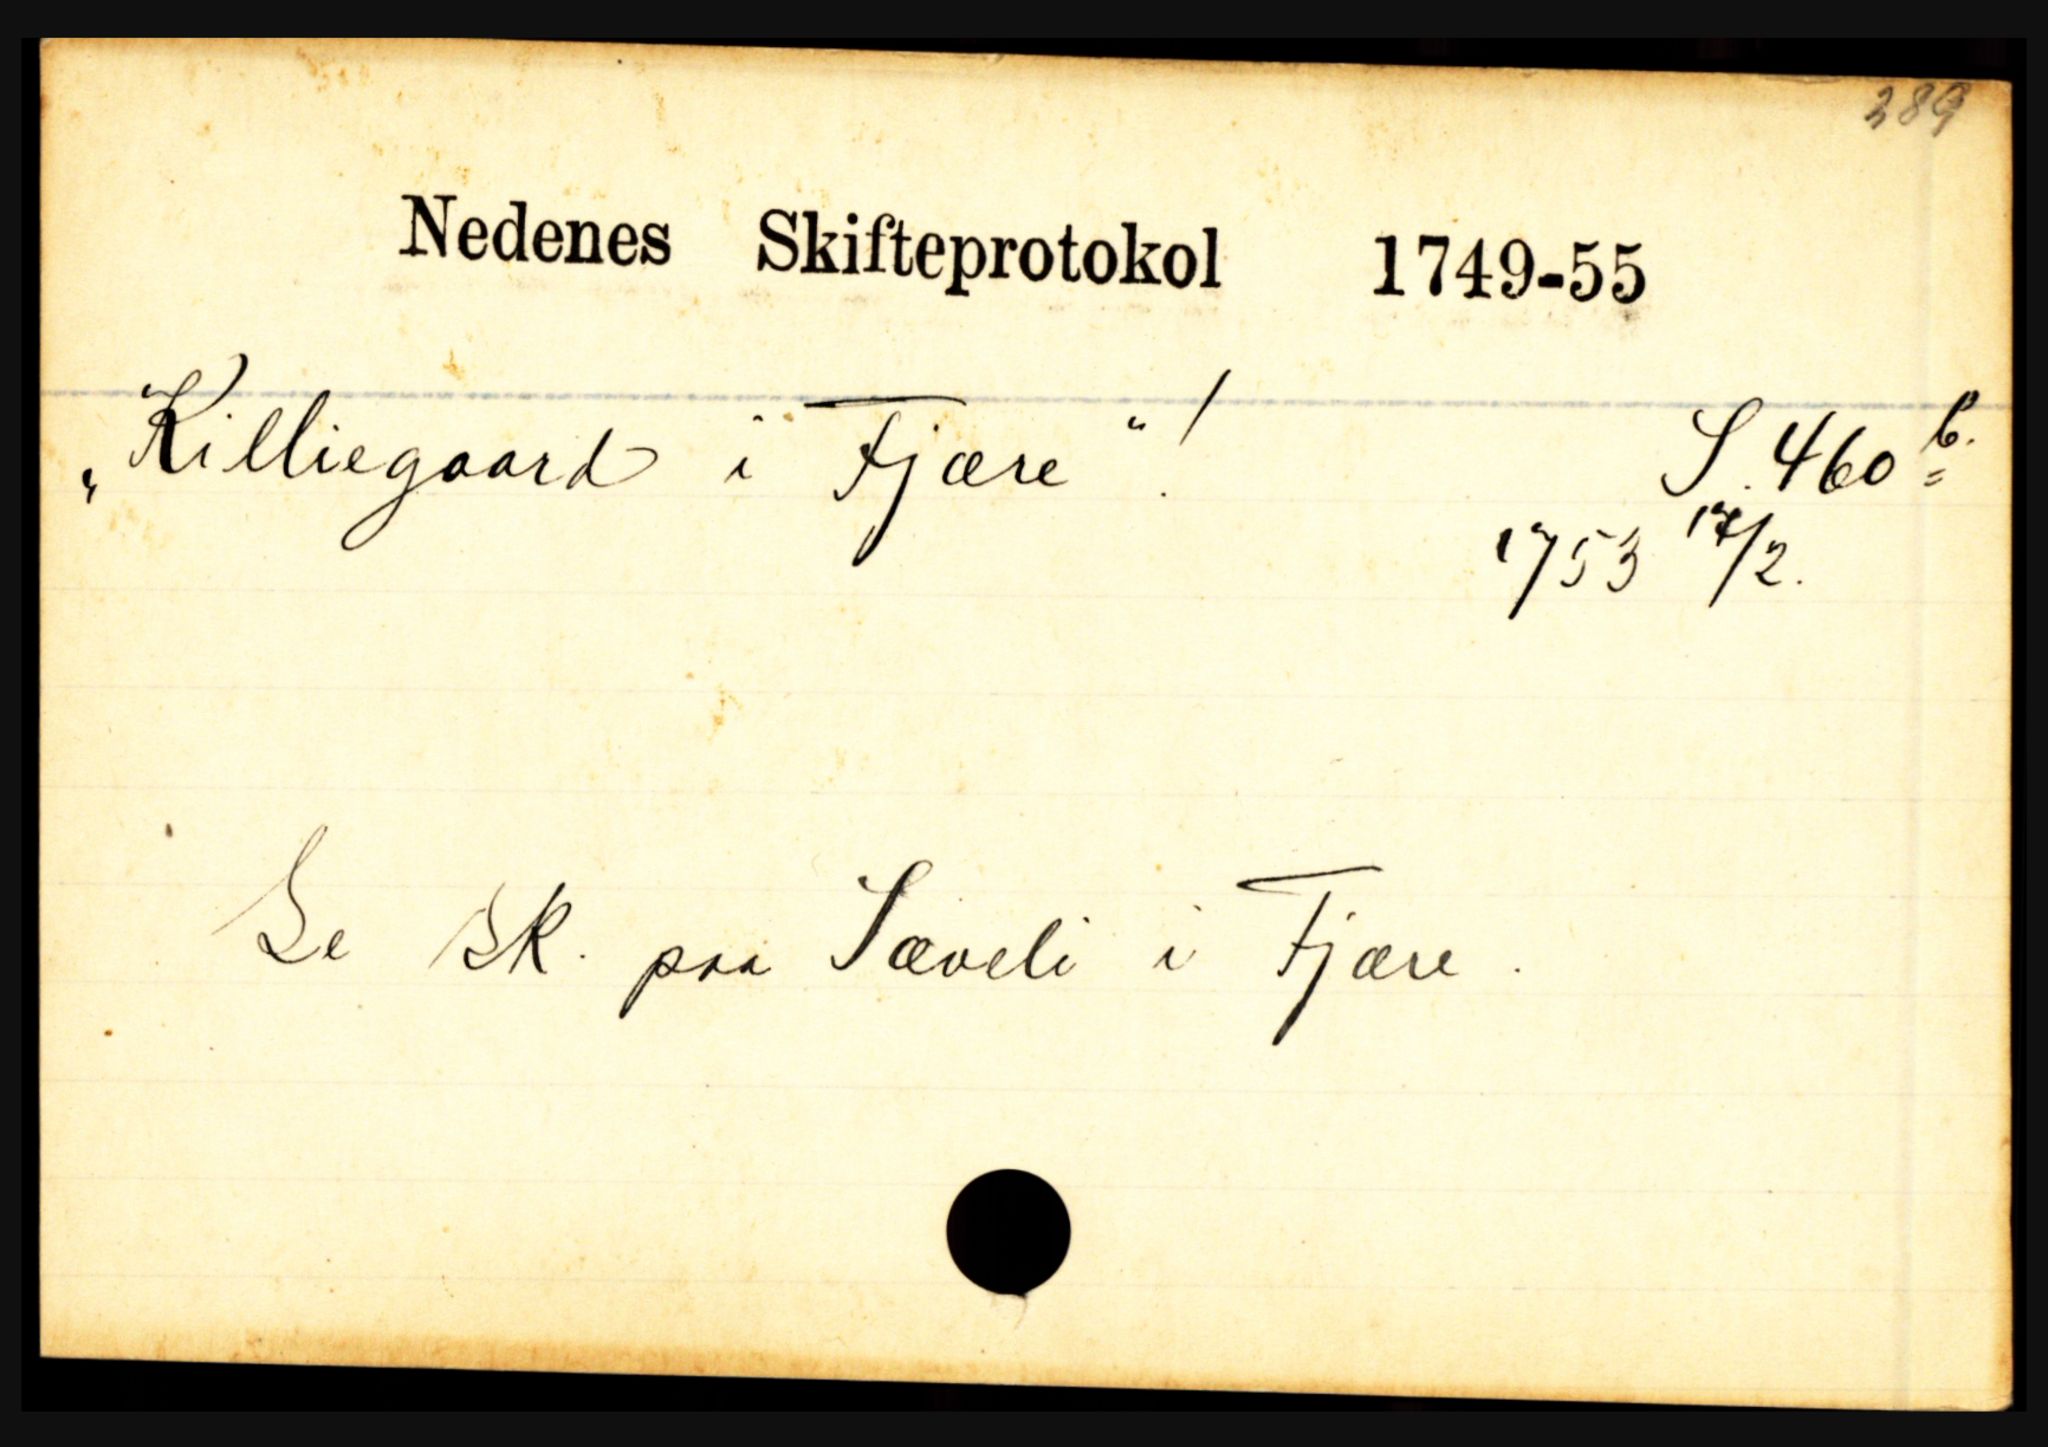 389
Nedenes Skifteprotokol 1749-55
„Killiegaard i Fjære“!
S. 460 b.
1753 17/2.
Se Sk. paa Sæveli i Fjære.